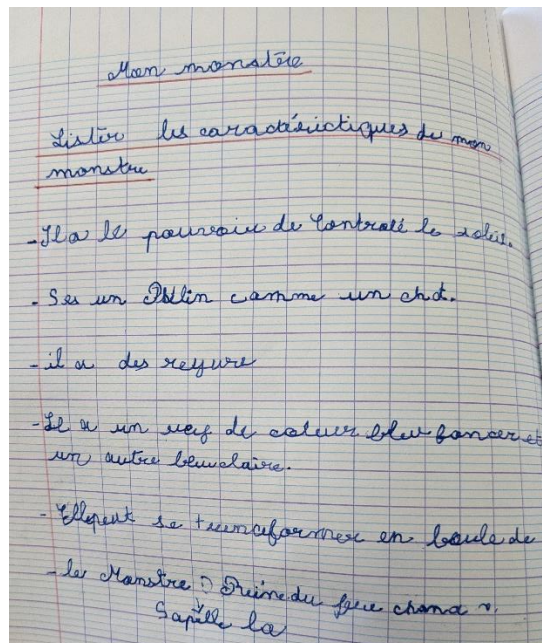 Mon monstre
Lister les caractérictiques de mon
monstre
- Il a le pouvoir de Controlé le soleis.
- Ses un félin comme un chat.
- il a des reyure
- Il a un yeg de couleur bleu foncer et
un autre bleuclaire.
- Ellepeut se trencformer en boule de
- le Monstre : Reine du feu chand
Sapélle la